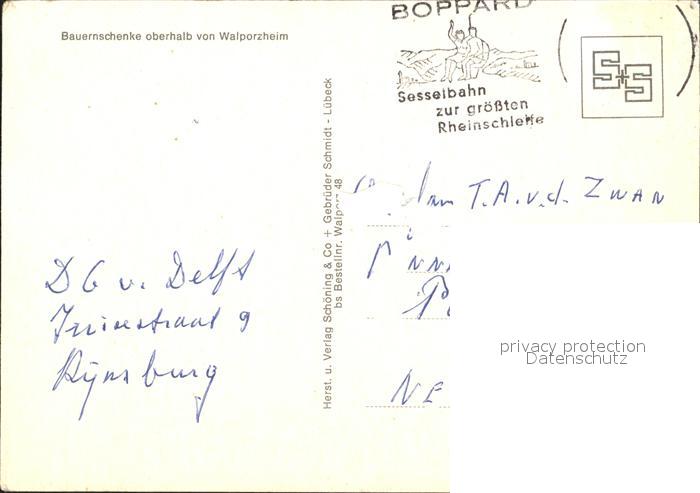 Bauernschenke oberhalb von Walporzheim
BOPPARD
Sesselbahn
zur größten
Rheinschleife
S+S
Herst. u. Verlag Schöning & Co + Gebrüder Schmidt - Lübeck
bs Bestellnr. Walporz 48
T.A.v.d. ZWAN
NE
D G v. Delft
9
Rijnsburg
privacy protection
Datenschutz